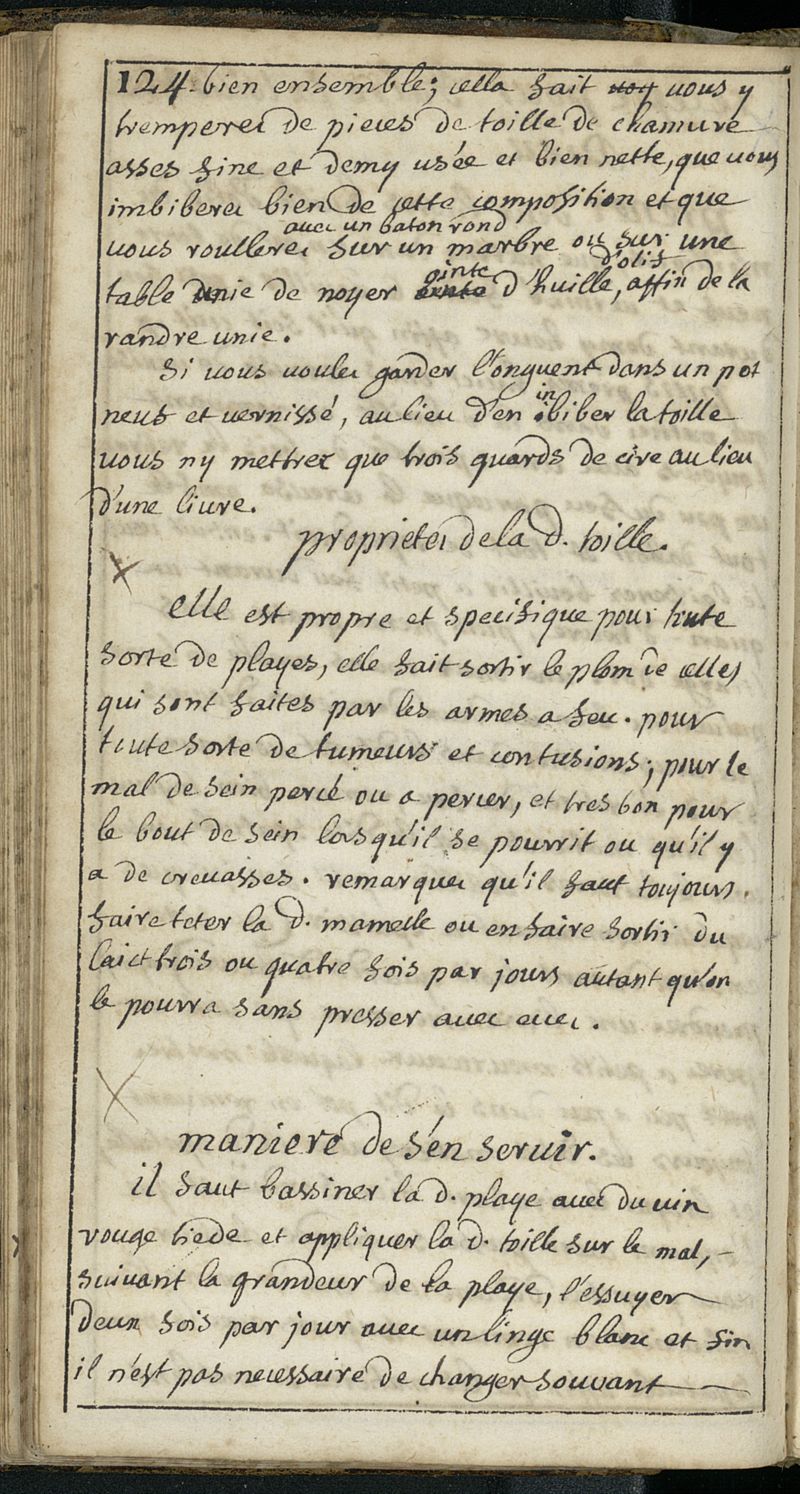 124. bien ensemble; cella fait vous y
tremperez de pieces de toille de chanvre
asses fine et demy usée et bien nette, que vous
imbiberez bien de cette composition et que
avec un baton rond
vous roullerez sur un marbre ou sur une
ointe d'olif
table unie de noyer d'huille, affin de la
randre unie.
Si vous voulez garder l'onguent dans un pot
neuf et vernissé, au lieu d'en inbiber la toille
vous n'y mettrez que trois quards de cire au lieu
d'une livre.
proprietez de la d. toille.
elle est propre et specifique pour toute
sorte de playes, elle fait sortir le plom de celles
qui sont faites par les armes a feu. pour
toute sorte de tumeurs et contusions; pour le
mal de sein percé ou a percer, et tres bon pour
le bout de sein lorsqu'il se pourrit ou qu'il y
a de crevasses. remarquez qu'il faut toujours
faire teter la d. mamelle ou en faire sortir du
laict trois ou quatre fois par jours autant qu'on
le pourra sans presser avec avec.
maniere de s'en servir.
il faut bassiner la d. playe avec du vin
rouge tiede et appliquer la d. toille sur le mal,
suivant la grandeur de la playe, l'essuyer
deux fois par jour avec un linge blanc et fin
il n'est pas necessaire de changer souvant